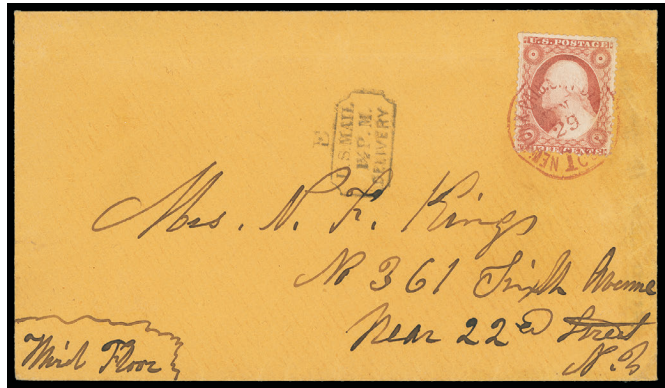 U.S. POSTAGE
THREE CENTS
29
E
U.S MAIL
1½ P.M.
DELIVERY
Mrs. N. F. Kings
No 361 Sixth Avenue
Near 22ed Street
N.Y
Third Floor